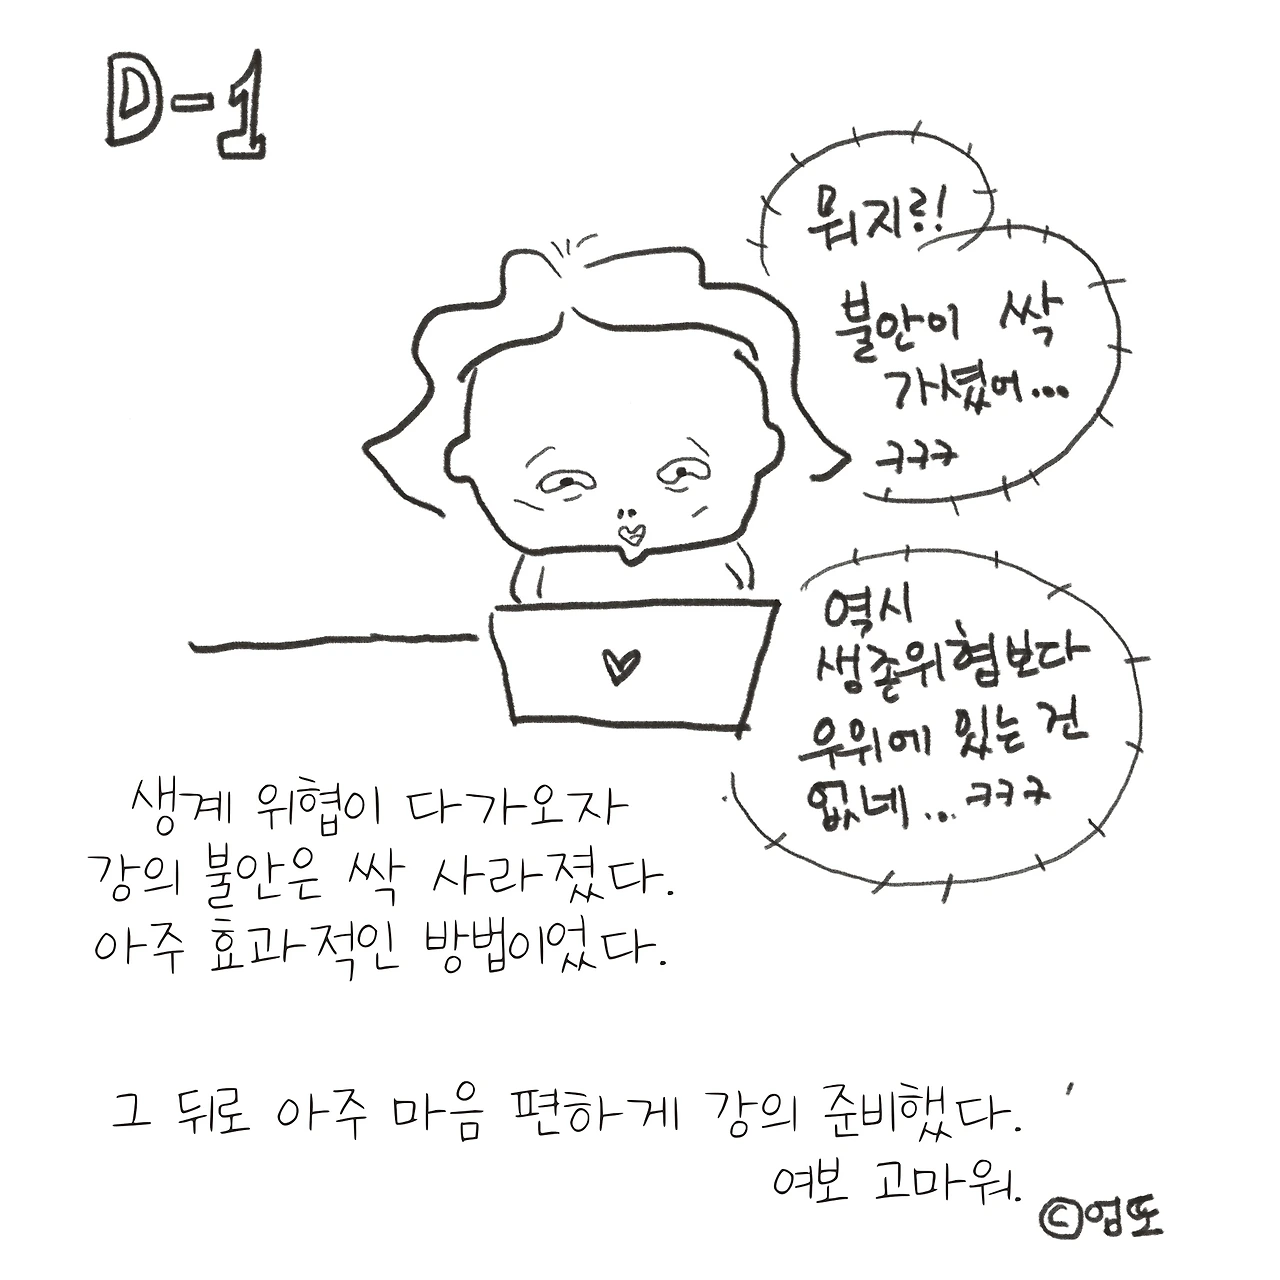 D-1
뭐지?!
불안이 싹
가셨어...
ㅋㅋㅋ
역시
생존위협보다
우위에 있는 건
없네... ㅋㅋㅋ
생계 위협이 다가오자
강의 불안은 싹 사라졌다.
아주 효과적인 방법이었다.
그 뒤로 아주 마음 편하게 강의 준비했다.
여보 고마워.
©엄또